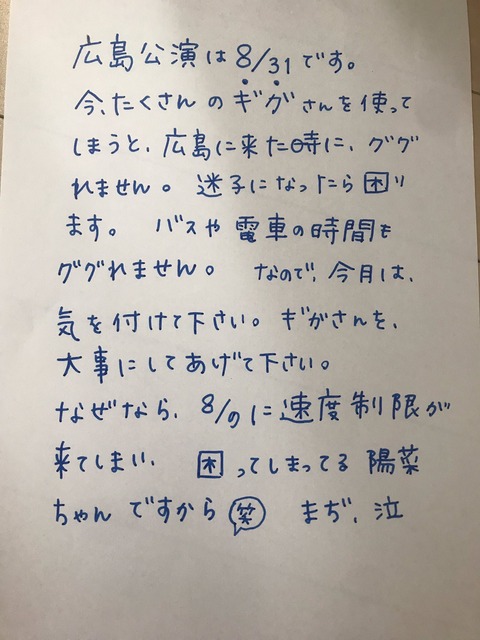 広島公演は8/31です。
今、たくさんのギガさんを使って
しまうと、広島に来た時に、ググ
れません。迷子になったら困り
ます。 バスや電車の時間も
ググれません。 なので、今月は、
気を付けて下さい。ギガさんを、
大事にしてあげて下さい。
なぜなら、8/1に速度制限が
来てしまい、 困ってしまってる陽菜
ちゃんですから 笑 まぢ、泣